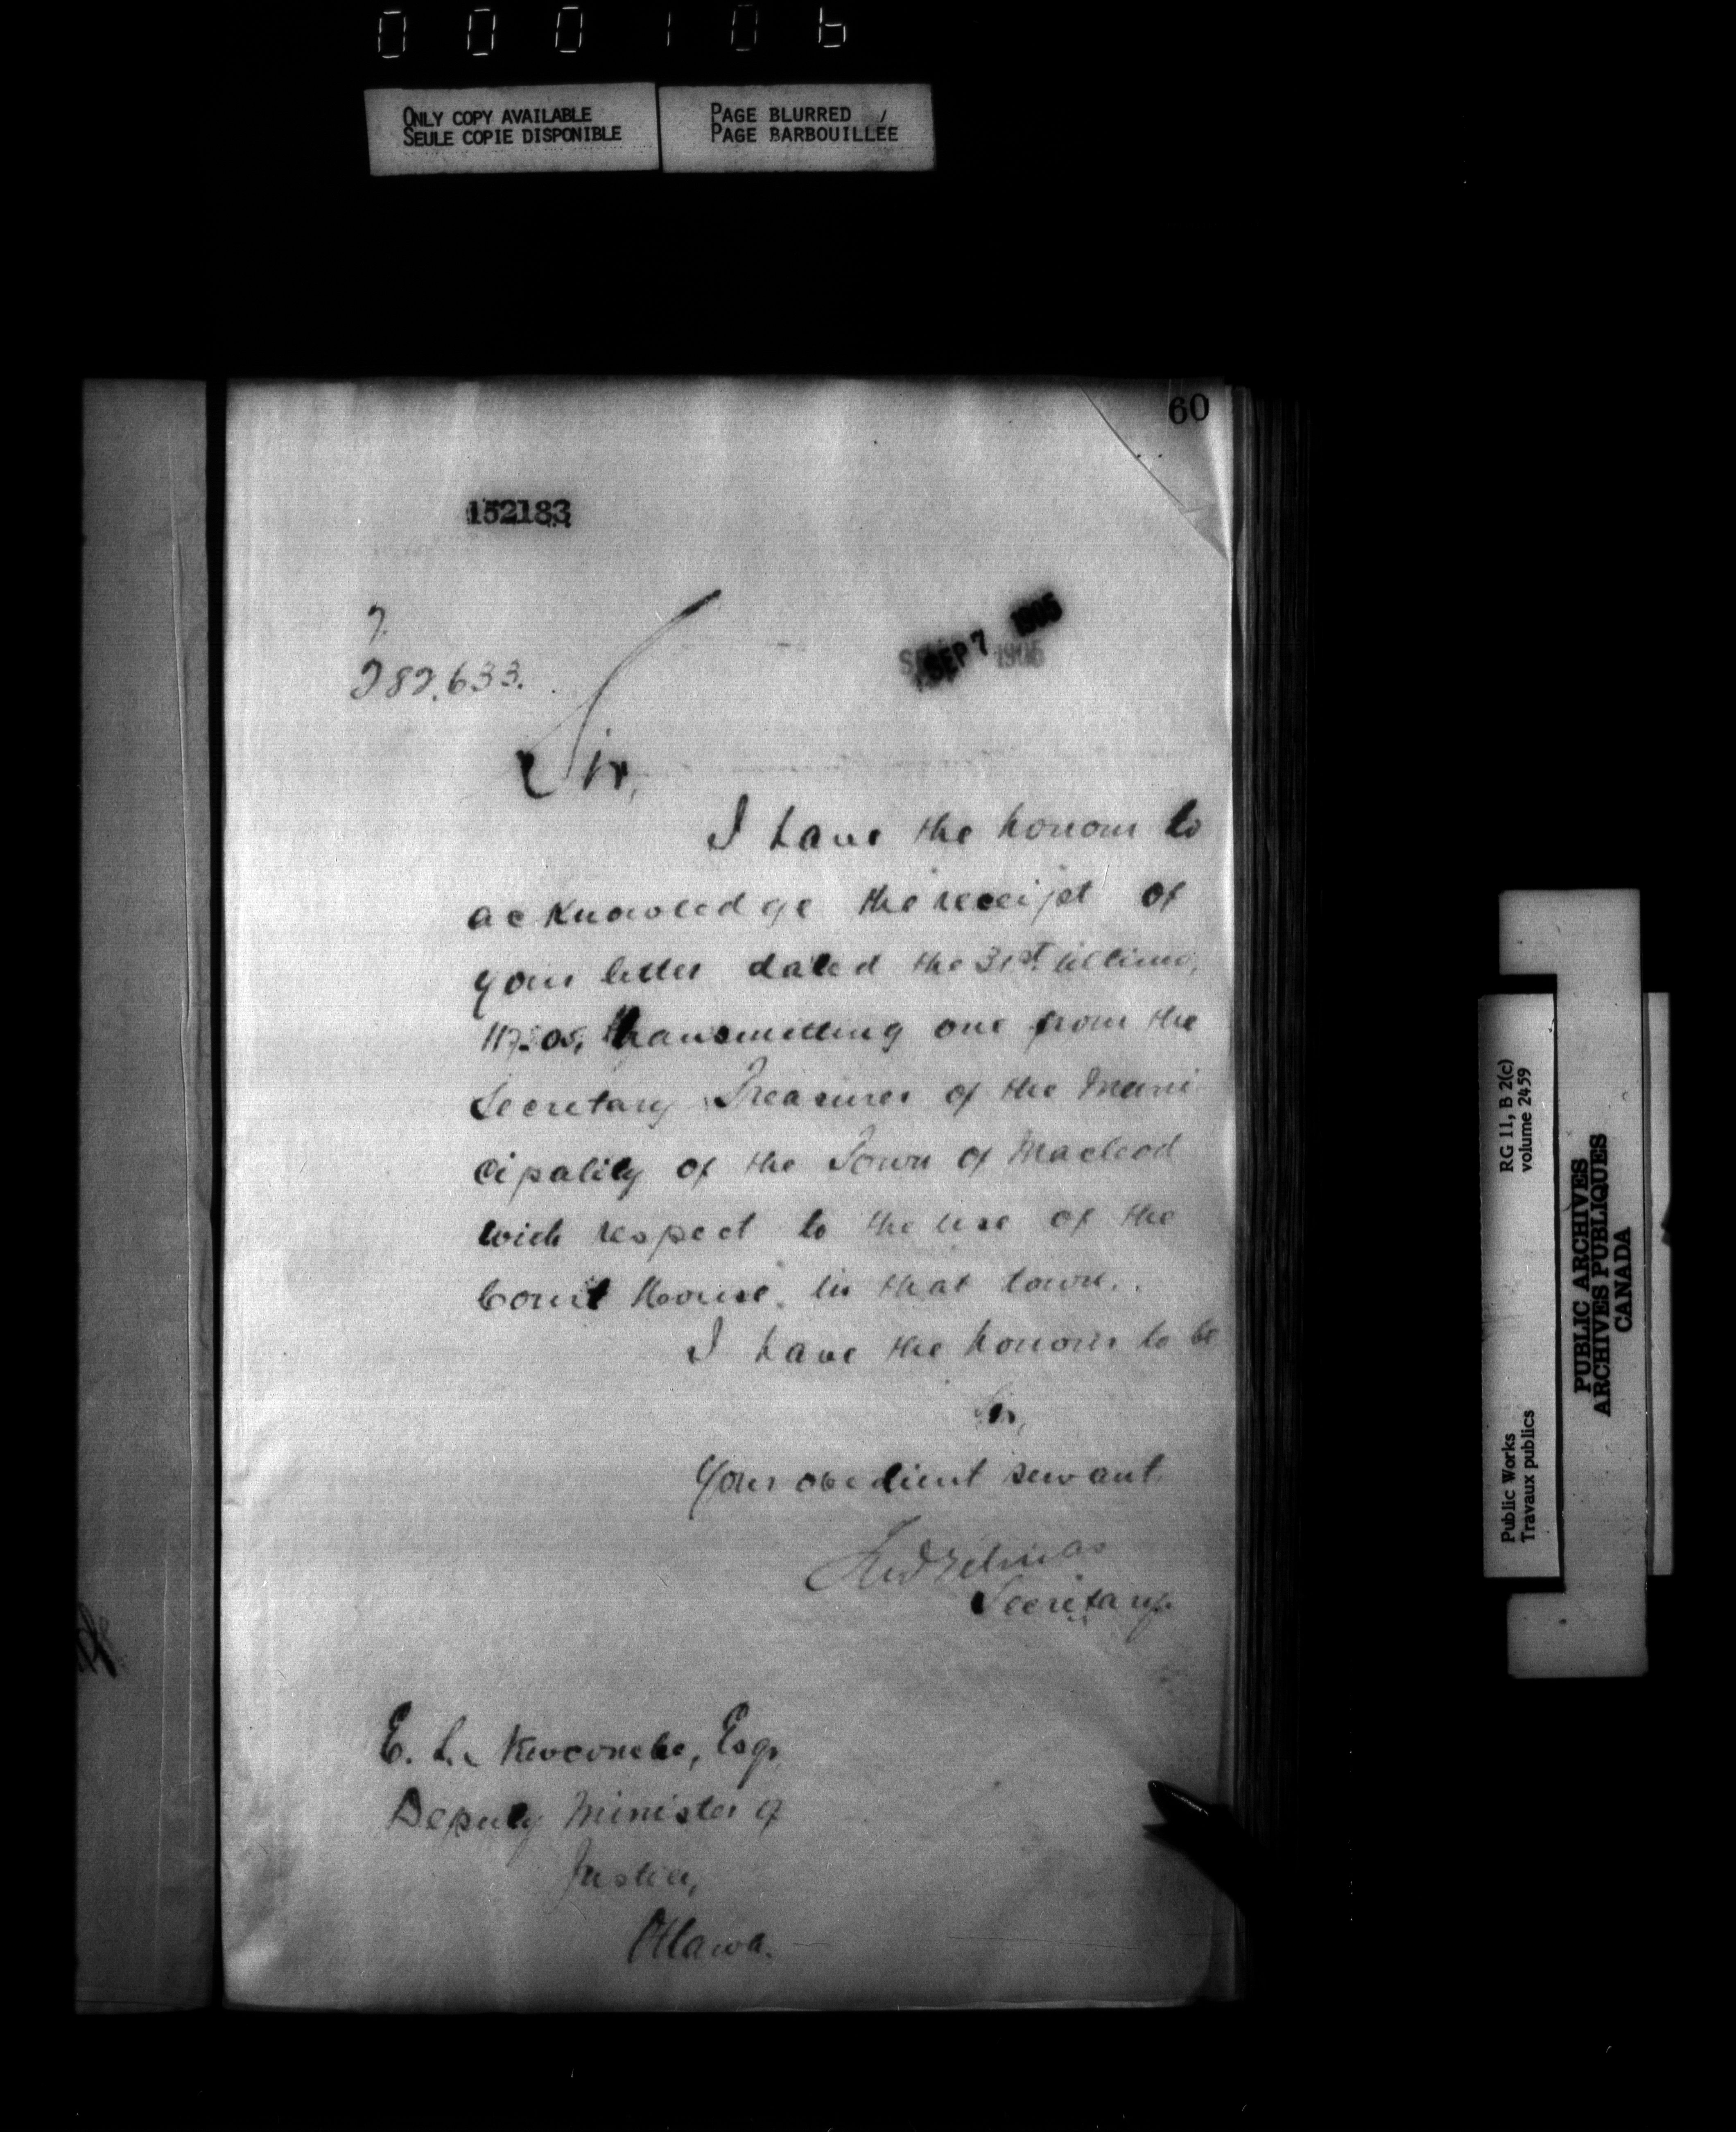 000106
ONLY COPY AVAILABLE
SEULE COPIE DISPONIBLE
PAGE BLURRED
PAGE BARBOUILLÉE
60
152183
282,633.
SEP 7 1905
Sir,
I have the honour to
acknowledge the receipt of
your letter dated the 31st ultimo,
117-05, transmitting one from the
Secretary Treasurer of the Muni
cipality of the Town of Macleod
with respect to the use of the
Court House in that town.
I have the honour to be
Sir,
Your obedient servant,
Secretary.
E. L. Newcombe, Esqr
Deputy Minister of
Justice,
Ottawa.
RG 11, B 2(c)
volume 2459
Public Works
Travaux publics
PUBLIC ARCHIVES
ARCHIVES PUBLIQUES
CANADA